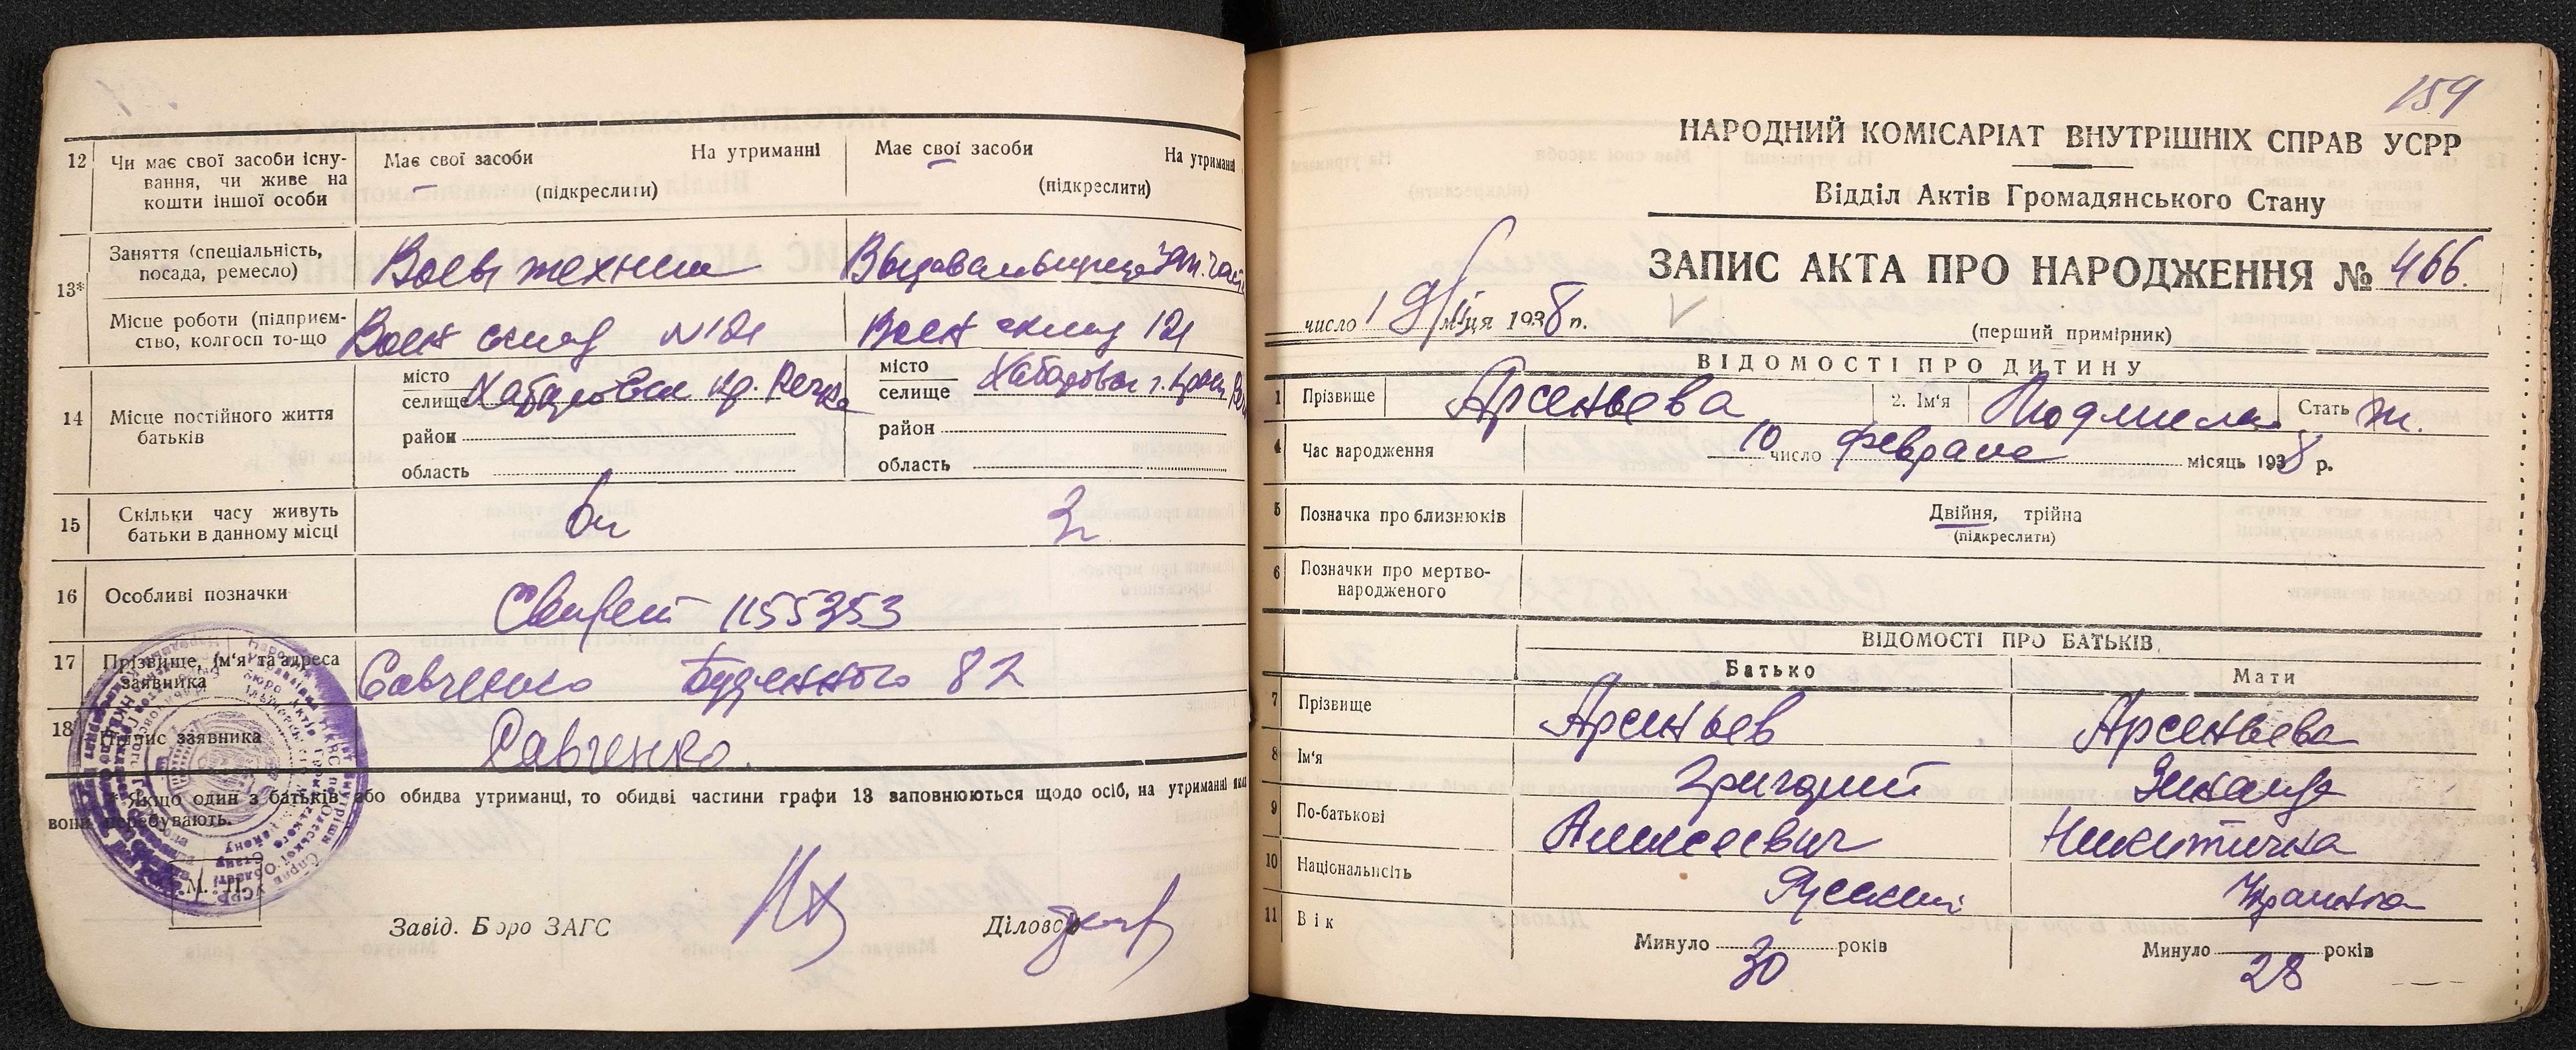 12 Чи має свої засоби існу-
вання, чи живе на
кошти іншої особи
Має свої засоби На утриманні
(підкреслити)
Має свої засоби На утриманні
(підкреслити)
13* Заняття (спеціальність,
посада, ремесло)
Воен техник
Выдавальщица зап. час
Місце роботи (підприєм-
ство, колгосп то-що
Воен склад №121
Воен склад 121
14 Місце постійного життя
батьків
місто
селище Хабаровск кр. Речка
район
область
місто
селище Хабаровск г. Красн. Реч
район
область
15 Скільки часу живуть
батьки в данному місці
6 л
3 г
16 Особливі позначки
1155353
17 Прізвище, ім'я та адреса
заявника
Савченко Буденного 82
18 Підпис заявника
Савченко.
* Якщо один з батьків або обидва утриманці, то обидві частини графи 13 заповнюються щодо осіб, на утриманні яких
вони перебувають.
М. П.
Завід. Бюро ЗАГС
Діловод
159
НАРОДНИЙ КОМІСАРІАТ ВНУТРІШНІХ СПРАВ УСРР
Відділ Актів Громадянського Стану
ЗАПИС АКТА ПРО НАРОДЖЕННЯ № 466.
число 19/II м-ця 1938 р.
(перший примірник)
ВІДОМОСТІ ПРО ДИТИНУ
1 Прізвище Арсеньева 2. Ім'я Людмила Стать ж.
4 Час народження 10 число февраля місяць 1938 р.
5 Позначка про близнюків Двійня, трійна
(підкреслити)
6 Позначки про мертво-
народженого
ВІДОМОСТІ ПРО БАТЬКІВ
Батько Мати
7 Прізвище Арсеньев Арсеньева
8 Ім'я Григорий Зинаида
9 По-батькові Алексеевич Никитична
10 Національність Русский Украинка
11 Вік Минуло 30 років Минуло 28 років